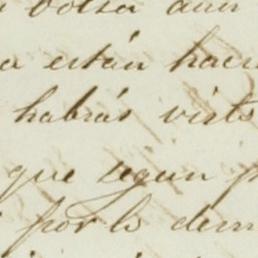 bolsa aun
a están hac
habrás visto
que segun p
por lo dem